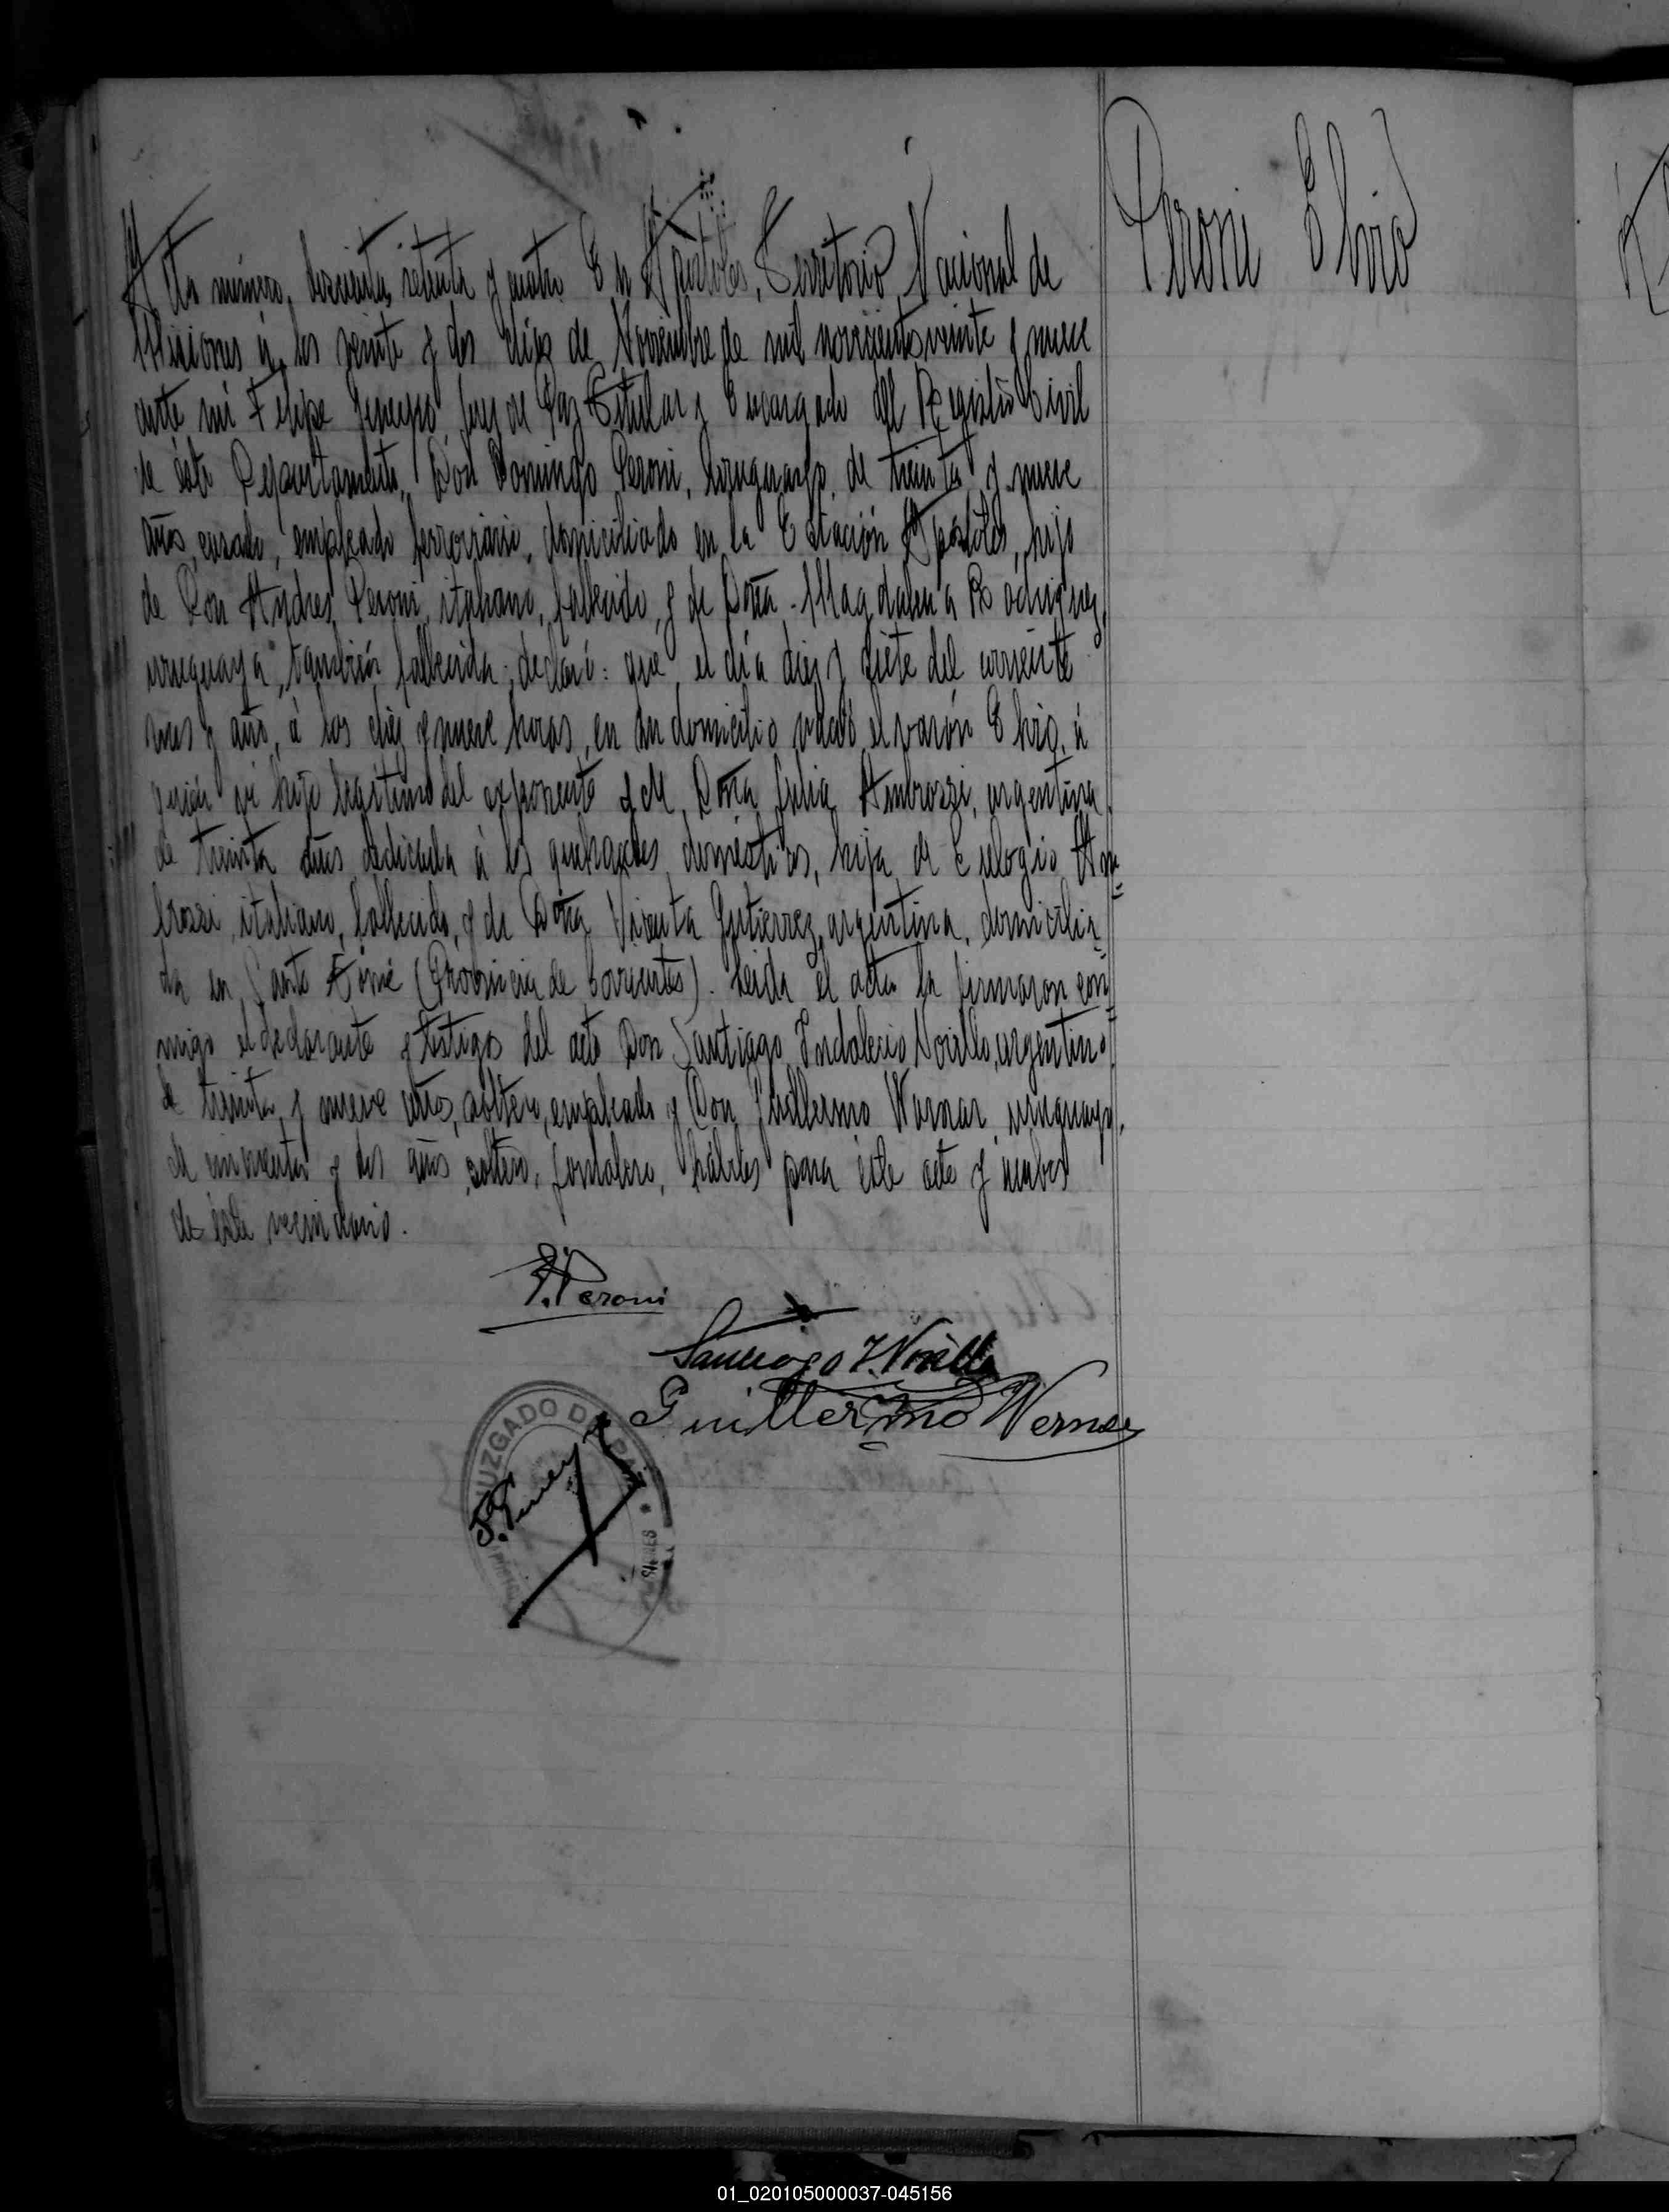 Peroni Elvio
Acta número, doscientos setenta y cuatro En Apóstoles, Territorio Nacional de
Misiones á los veinte y dos dias de Noviembre de mil novecientos veinte y nueve
ante mi Felipe Juez de Paz Titular y Encargado del Registro Civil
de éste Departamento, Don Domingo Peroni, Uruguayo, de treinta y nueve
años, casado, empleado ferroviario, domiciliado en la Estación Apóstoles, hijo
de Don Andres Peroni, italiano, fallecido, y de Doña Magdalena Rodriguez,
uruguaya, también fallecida; declaró: que el día diez y siete del corriente
mes y año, á las diez y nueve horas, en su domicilio nació el varón Elvio, á
quién vi hijo legitimo del exponente y de Doña Julia Ambrossi, argentina
de treinta años dedicada á los quehaceres domésticos, hija de Eulogio Am=
brossi, italiano, fallecido, y de Doña Vicenta Gutierrez, argentina, domicilia=
da en Santo Tomé (Provincia de Corrientes). Leida el acta la firmaron con=
migo el declarante y testigos del acto Don Santiago Indalecio argentino
de treinta y nueve años, soltero, empleado y Don Guillermo Warnar, uruguayo,
de cincuenta y dos años, soltero, jornalero, hábiles para éste acto y ambos
de éste vecindario.
Peroni
Santiago I.
Guillermo Werner
JUZGADO DE PAZ
F.